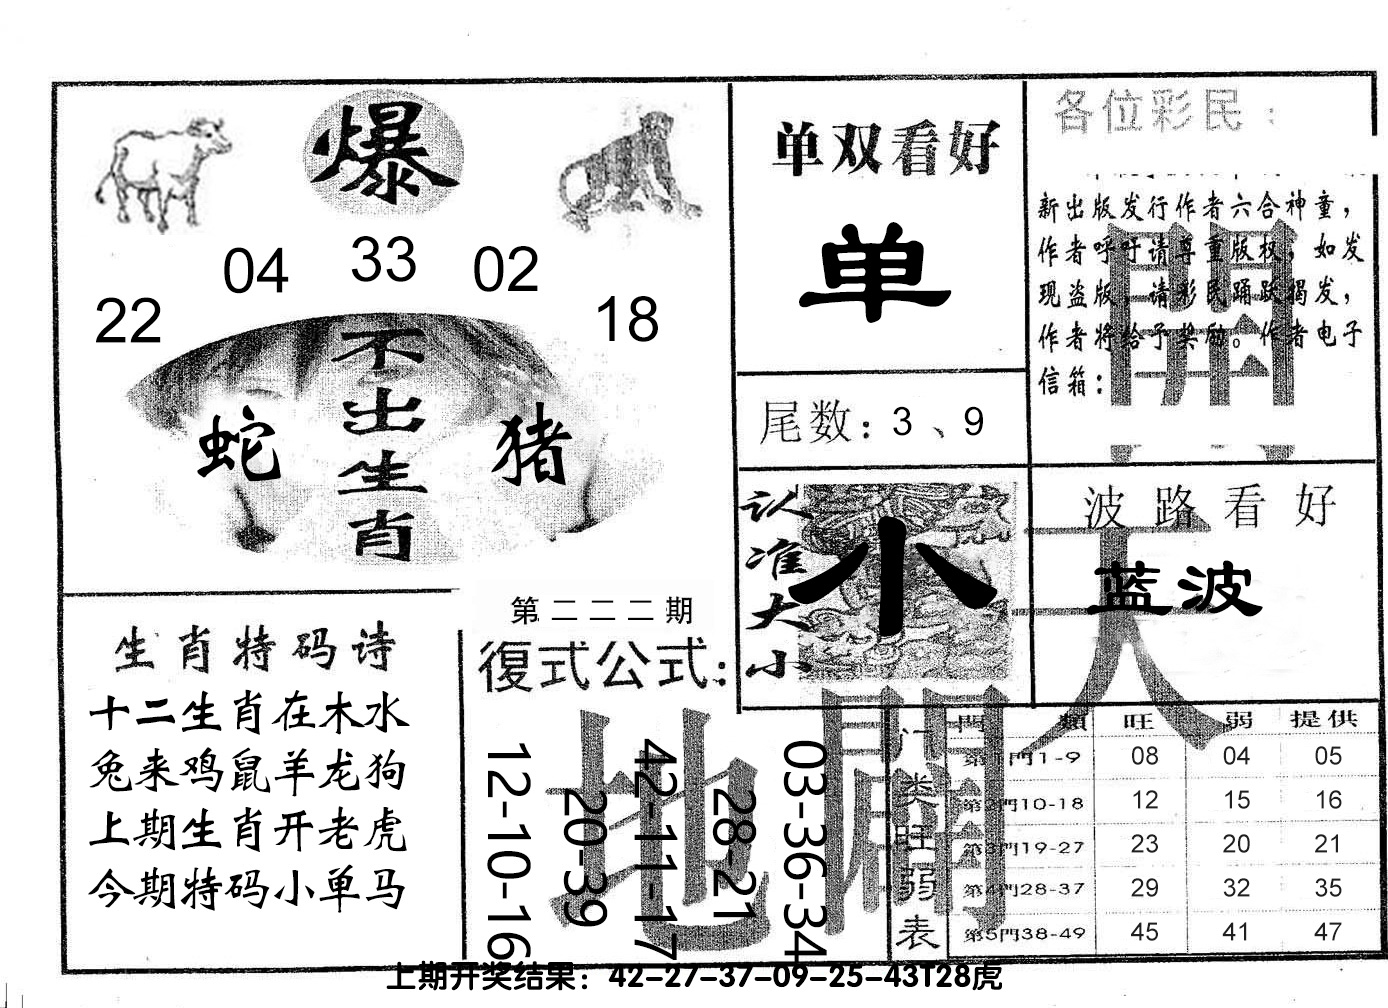 爆
22 04 33 02 18
不出生肖
蛇
猪
单双看好
单
尾数：3、9
认准大小
小
各位彩民：
新出版发行作者六合神童，
作者呼吁请尊重版权，如发
现盗版，请彩民踊跃揭发，
作者将给予奖励。作者电子
信箱：
波路看好
蓝波
生肖特码诗
十二生肖在木水
兔来鸡鼠羊龙狗
上期生肖开老虎
今期特码小单马
第二二二期
復式公式：
12-10-16
20-39
42-11-17
28-21
03-36-34
天
開
地
闢
门类旺弱表
門類 旺 弱 提供
第1門1-9 08 04 05
第2門10-18 12 15 16
第3門19-27 23 20 21
第4門28-37 29 32 35
第5門38-49 45 41 47
上期开奖结果：42-27-37-09-25-43T28虎